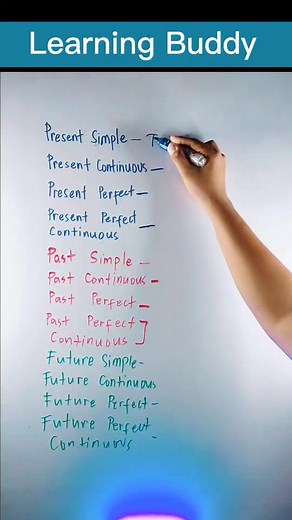 Learning Buddy
Present Simple —
Present Continuous —
Present Perfect —
Present Perfect —
Continuous
Past Simple —
Past Continuous -
Past Perfect -
Past Perfect
Continuous
Future Simple-
Future Continuous
Future Perfect -
Future Perfect
Continuous -